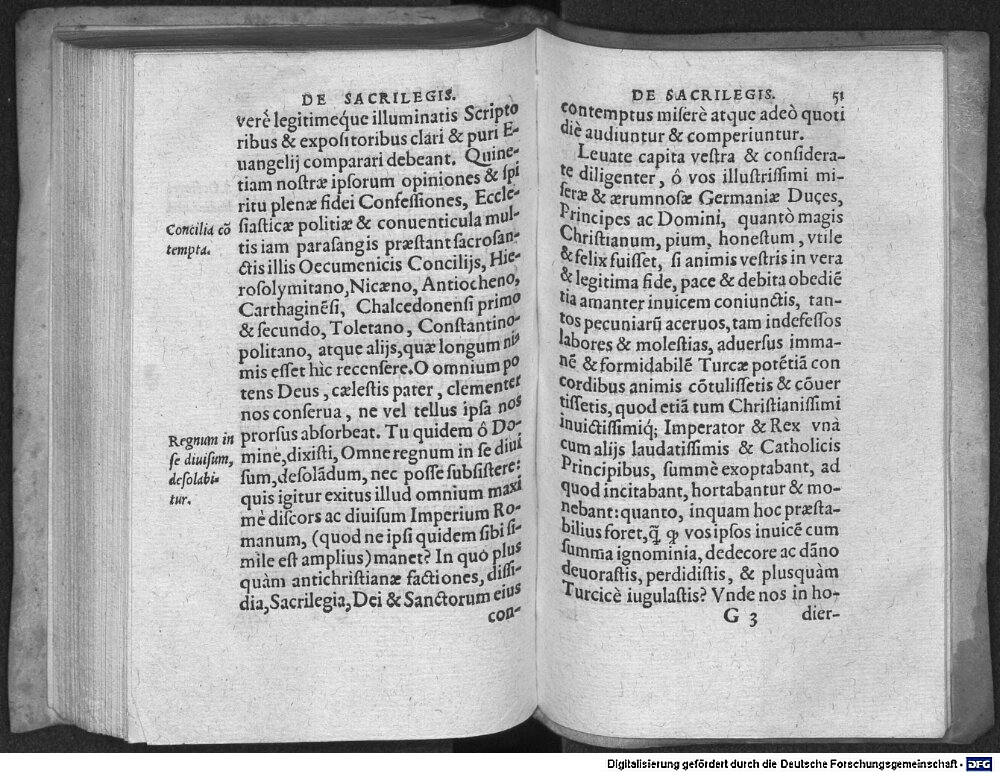 DE SACRILEGIS.
verè legitimeq́ue illuminatis Scripto
ribus & expoſitoribus clari & puri E-
uangelij comparari debeant. Quine-
tiam noſtræ ipſorum opiniones & ſpi
ritu plenæ fidei Confeſſiones, Eccle-
ſiaſticæ politiæ & conuenticula mul-
tis iam paraſangis præſtant ſacroſan-
ctis illis Oecumenicis Concilijs, Hie-
roſolymitano, Nicæno, Antiocheno,
Carthaginēſi, Chalcedonenſi primo
& ſecundo, Toletano, Conſtantino-
politano, atque alijs, quæ longum nis
mis eſſet hic recenſere. O omnium po
tens Deus, cæleſtis pater, clementer
nos conſerua, ne vel tellus ipſa nos
prorſus abſorbeat. Tu quidem ô Do-
mine, dixiſti, Omne regnum in ſe diui
ſum, deſolādum, nec poſſe ſubſiſtere:
quis igitur exitus illud omnium maxi
mè diſcors ac diuiſum Imperium Ro-
manum, (quod ne ipſi quidem ſibi ſi-
mile eſt amplius) manet? In quo plus
quàm antichriſtianæ factiones, diſſi-
dia, Sacrilegia, Dei & Sanctorum eius
con-
Concilia cō
tempta.
Regnum in
ſe diuiſum,
deſolabi-
tur.
DE SACRILEGIS. 51
contemptus miſerè atque adeò quoti
diè audiuntur & comperiuntur.
Leuate capita veſtra & conſidera-
te diligenter, ô vos illuſtriſſimi mi-
ſeræ & ærumnoſæ Germaniæ Duces,
Principes ac Domini, quantò magis
Chriſtianum, pium, honeſtum, vtile
& felix fuiſſet, ſi animis veſtris in vera
& legitima fide, pace & debita obediē
tia amanter inuicem coniunctis, tan-
tos pecuniarū aceruos, tam indefeſſos
labores & moleſtias, aduerſus imma-
nē & formidabilē Turcæ potētiā con
cordibus animis cōtuliſſetis & cōuer
tiſſetis, quod etiā tum Chriſtianiſſimi
inuictiſſimiq; Imperator & Rex vnà
cum alijs laudatiſſimis & Catholicis
Principibus, ſummè exoptabant, ad
quod incitabant, hortabantur & mo-
nebant: quanto, inquam hoc præſta-
bilius foret, q̄̃ ꝙ vos ipſos inuicē cum
ſumma ignominia, dedecore ac dāno
deuoraſtis, perdidiſtis, & pluſquàm
Turcicè iugulaſtis? Vnde nos in ho-
G 3 dier-
Digitalisierung gefördert durch die Deutsche Forschungsgemeinschaft - DFG